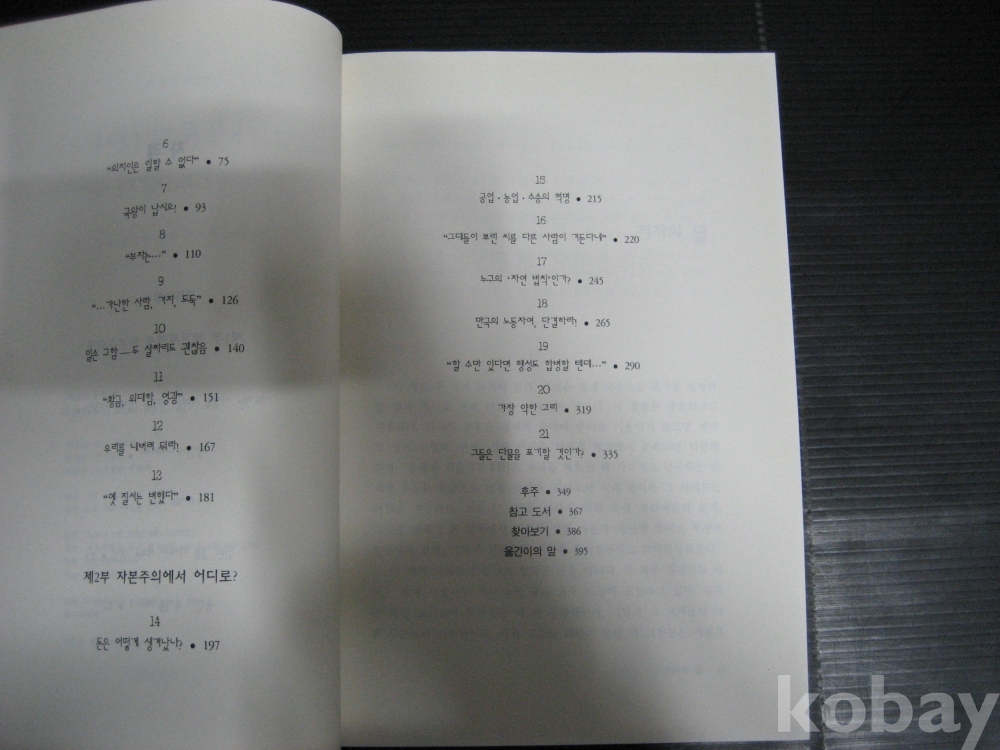 6
"외지인은 일할 수 없다" • 75
7
국왕이 납시오! • 93
8
"부자는…" • 110
9
"…가난한 사람, 거지, 도둑" • 126
10
일손 구함 — 두 살짜리도 괜찮음 • 140
11
"황금, 위대함, 영광" • 151
12
우리를 내버려 둬라! • 167
13
"옛 질서는 변했다" • 181
제2부 자본주의에서 어디로?
14
돈은 어떻게 생겨났나? • 197
15
공업·농업·수송의 혁명 • 215
16
"그대들이 뿌린 씨를 다른 사람이 거둔다네" • 220
17
누구의 '자연 법칙'인가? • 245
18
만국의 노동자여, 단결하라! • 265
19
"할 수만 있다면 행성도 합병할 텐데…" • 290
20
가장 약한 고리 • 319
21
그들은 단물을 포기할 것인가? • 335
후주 • 349
참고 도서 • 367
찾아보기 • 386
옮긴이의 말 • 395
kobay